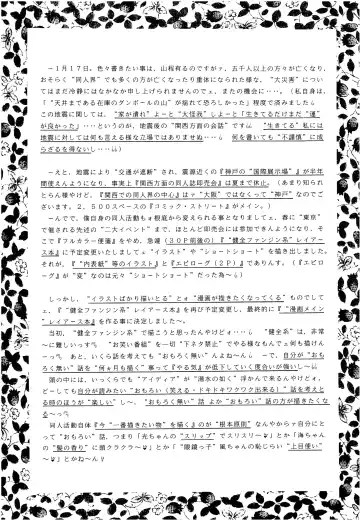 －１月１７日。色々書きたい事は、山程有るのですがｧ、五千人以上の方々が亡くなり、
おそらく“同人界”でも多くの方が亡くなったり重体になられた様な、“大災害”につい
てはまだ冷静にはなかなか申し上げられませんのでェ、またの機会に…。（私自身は、
「“天井まである在庫のダンボールの山”が崩れて恐ろしかった」程度で済みました
この地震に関しては、“家が潰れ”よーと“大怪我”しよーと「生きてるだけまだ“運”
が良かった」…というのが、地震後の“関西方面の会話”です “生きてる”私には
地震に対しては何も言える様な立場ではありませぬ 何を書いても“不謹慎”に成
らざるを得ないし…
－えと、地震により“交通が遮断”され、震源近くの『神戸の“国際展示場”』が半年
間使えんようになり、事実上『関西方面の同人誌即売会』は夏まで休止。（あまり知られ
とらんけれど、『関西での同人界の中心』はｧ“大阪”ではなくって“神戸”なのでご
ざいます。２，５００スペースの『コミック・ストリート』がメイン。）
－んで、僕自身の同人活動もｫ根底から変えられる事となりましてェ、春に“東京”
で催される先述の“二大イベント”まで、ほとんど即売会には参加できんようになり、そ
こで『フルカラー便箋』をやめ、急嬢（３０Ｐ前後の）『“健全ファンジン系”レイアー
ス本』に予定変更いたしましてェ“イラスト”や“ショートショート”を描き出しました。
それが、『“内表紙”等のイラスト』と『エピローグ（２Ｐ）』でありんす。（『エピロー
グ』が“変”なのは元々“ショートショート”だった為～
しかし、“イラストばかり描いとる”とｫ“漫画が描きたくなってくる”ものでして
ェ、『“健全ファンジン系”レイアース本』を再び予定変更し、最終的に『“漫画メイン
”レイアース本』を作る事に決定しました～。
当初、“健全ファンジン系”で描こうと思ったんやけどｫ… 『“健全”系』は、非常
～に難しいっす “お笑い番組”を一切“下ネタ禁止”でやる様なもんでェ何も描けん
～っ あと、いくら話を考えても“おもろく無い”んよね～ －で、自分が“おも
ろく無い”話を“何ヶ月も描く”事って“やる気”が低下していく度合いが強いし～
頭の中には、いっくらでも“アイディア”が“湯水の如く”浮かんで来るんやけどｫ、
どーしても自分が読みたい“おもろい（笑える・ドキドキワクワク出来る）”話を考えと
る時のほうが“楽しい”し～、“おもろく無い”話 よか“おもろい”話の方が描きたくな
る～っ
同人活動自体『今“一番描きたい物”を描く』のが“根本原則”なんやからｧ自分にと
って“おもろい”話、つまり「光ちゃんの“スリップ”でスリスリー♥」とか「海ちゃん
の“髪の香り”に頭クラクラ～♥」とか「“眼鏡っ子”風ちゃんの恥じらい“上目使い”
～♥」とかね～ん♥